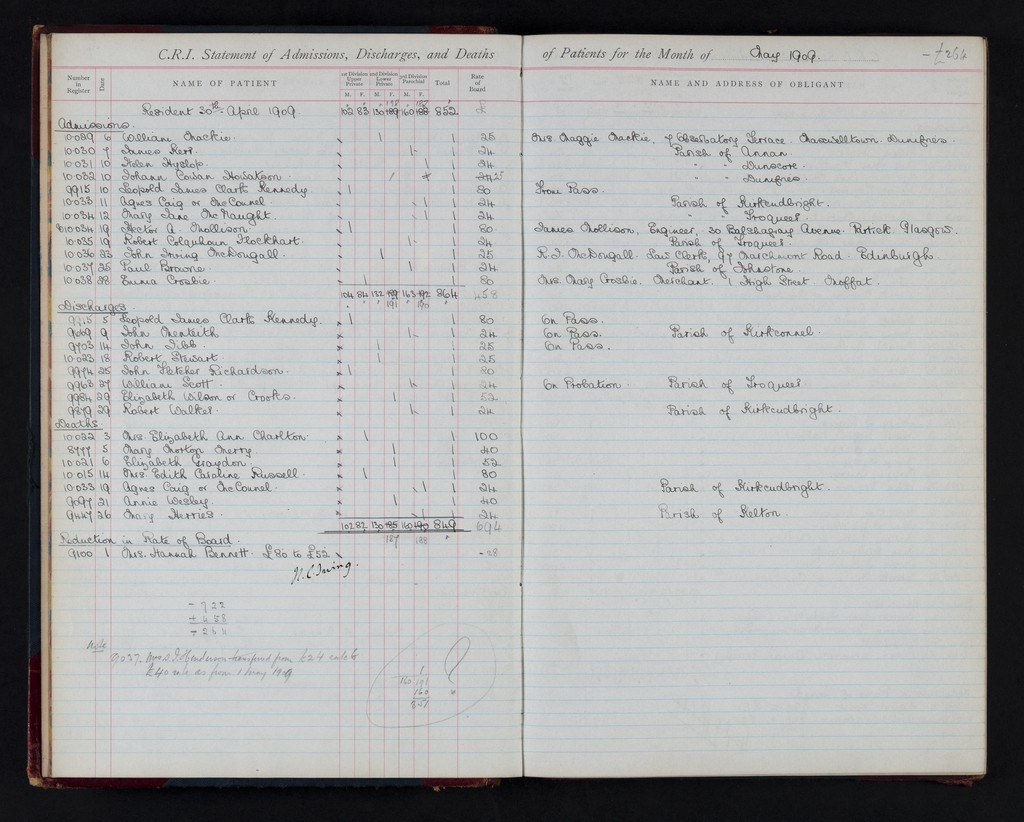 C.R.I. Statement of Admissions, Discharges, and Deaths of Patients for the Month of May 1909 - £264
Number in Register Date NAME OF PATIENT 1st Division Upper Private 2nd Division Lower Private 3rd Division Parochial Total Rate of Board NAME AND ADDRESS OF OBLIGANT
M. F. M. F. M. F.
Resident 30th April 1909 102 83 130 189 160 188 852 £
Admissions.
10029 6 William Mackie. 1 1 25 Mrs. Maggie Mackie, 7 Observatory Terrace. Maxwelltown. Dumfries
10030 7 James Kerr. 1 1 24 Parish of Annan.
10031 10 Helen Hyslop. 1 1 24 " " Dunscore.
10032 10 Johann Cowan Howatson 1 1 24 25 " " Dumfries.
9915 10 Leopold James Clark Kennedy 1 1 80 From Pass.
10033 11 Agnes Caig or McConnel. 1 1 24 Parish of Kirkcudbright.
10034 12 Mary Jane McNaught. 1 1 24 " " Troqueer.
10034 19 Hector A. Mollison. 1 1 80 James Mollison, Engineer, 30 Balshagray Avenue. Partick. Glasgow.
10035 19 Robert Colquhoun Flockhart. 1 1 24 Parish of Troqueer.
10036 23 John Irving McDougall. 1 1 25 R. I. McDougall. Law Clerk, 97 Marchmont Road. Edinburgh
10037 25 Paul Browne. 1 1 24 Parish of Johnstone.
10038 28 Emma Crosbie. 1 1 80 Mrs. Mary Crosbie. Merchant. 1 High Street Moffat.
104 84 132 189 163 192 864 458
191 190
Discharges.
9915 5 Leopold James Clark Kennedy. 1 1 80 On Pass.
9069 9 John Menteith 1 1 24 On Pass. Parish of Kirkconnel.
9703 14 John Tibb. 1 1 25 On Pass.
10023 18 Robert Stewart. 1 1 25
9974 25 John Fletcher Richardson. 1 1 80
9963 27 William Scott. 1 1 24 On Probation. Parish of Troqueer
9984 29 Elizabeth Wilson or Crooks. 1 1 52
9879 29 Robert Walker. 1 1 24 Parish of Kirkcudbright.
Deaths.
10022 3 Mrs. Elizabeth Ann Charlton. 1 1 100
8777 5 Mary Morton Merry. 1 1 40
10021 6 Elizabeth Graydon. 1 1 52
10015 14 Mrs. Edith Caroline Russell. 1 1 80
10033 19 Agnes Caig or McConnel. 1 1 24 Parish of Kirkcudbright.
9097 21 Annie Wesley. 1 1 40
9447 26 Mary Herries. 1 1 24 Parish of Kelton.
102 82 130 185 160 190 849 694
187 188
Reduction in Rate of Board.
9100 1 Mrs. Hannah Bennett. £80 to £52 - 28
- 722
+ 458
- 264
Note
Mrs Henderson transferred from £24 rate to
£40 rate as from 1 May 1909
160 191
160